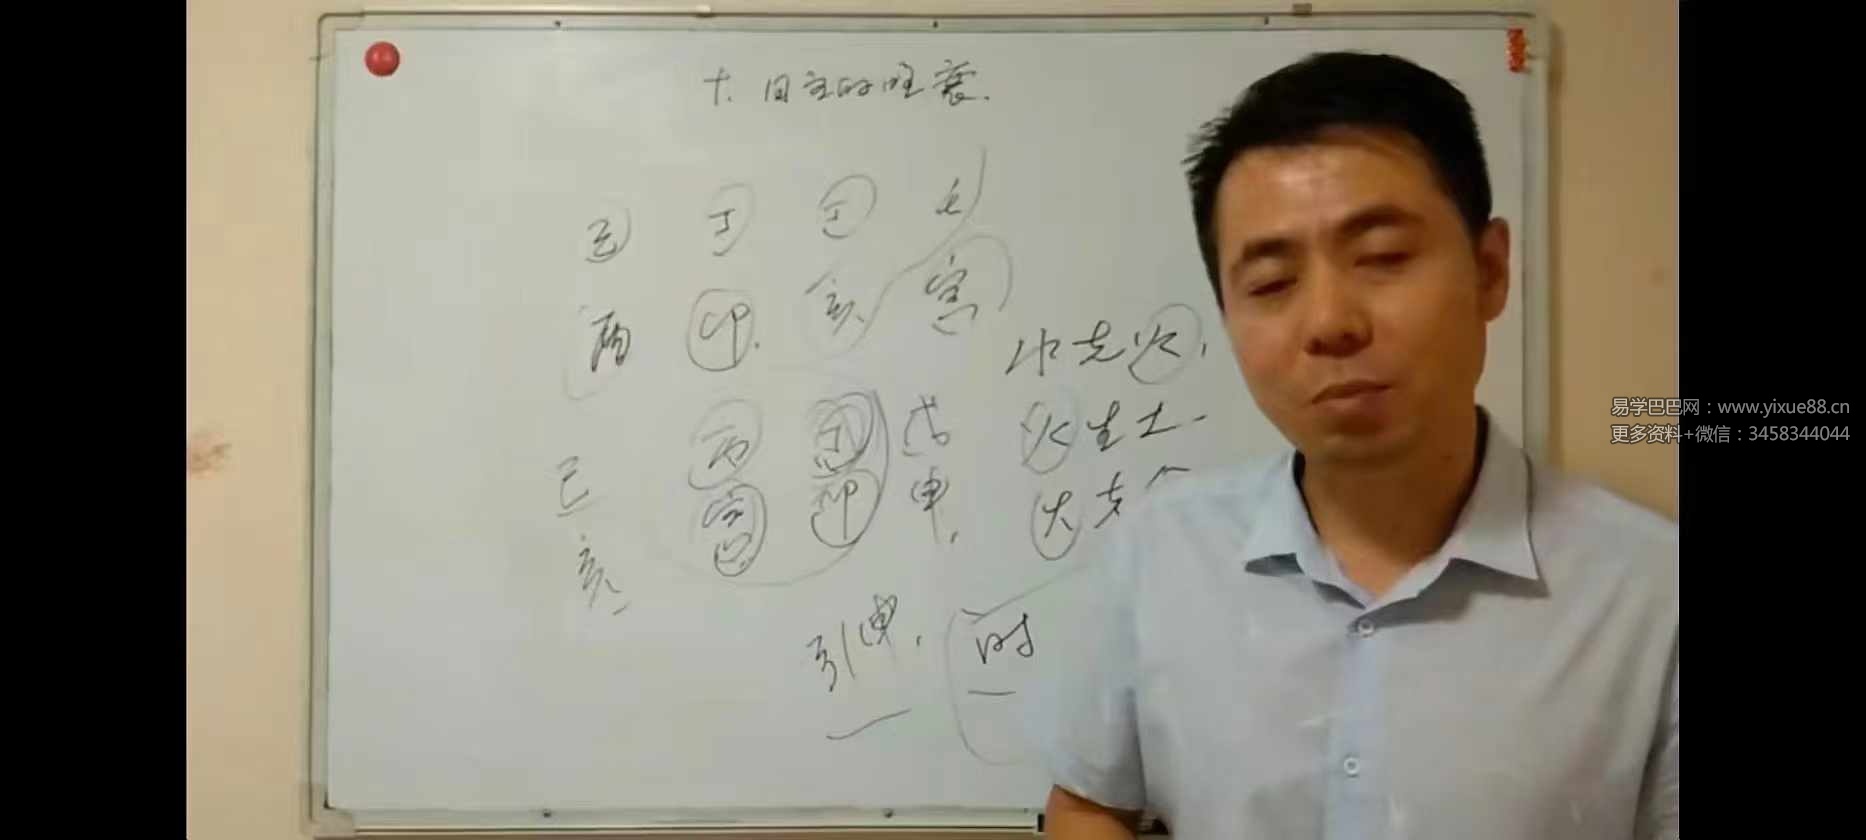 十、日主的旺衰.
丁 壬
酉 卯. 亥 寅
水克火,
丙 壬 戊
火生土
己 寅 卯 申.
火克
亥
引申, 时
易学巴巴网：www.yixue88.cn
更多资料+微信：3458344044